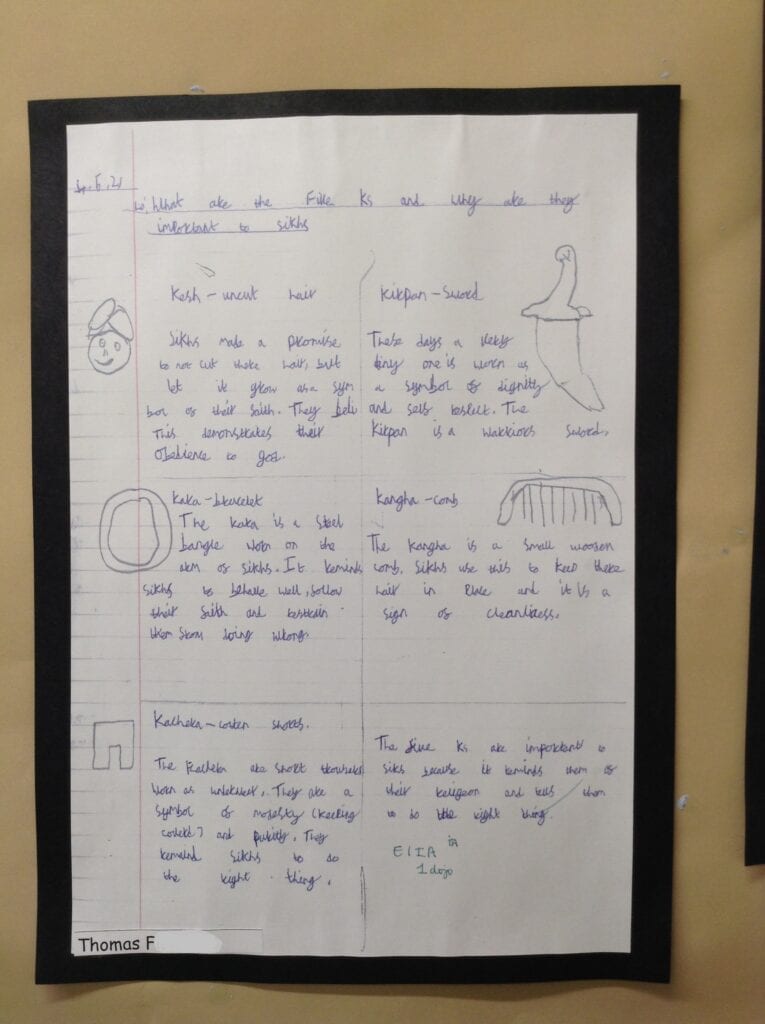 6.21
Lo: What are the Five Ks and why are they
important to sikhs
Kesh - uncut hair
Sikhs made a promise
to not cut there hair, but
let it grow as a sym
bol of their faith. They beli
This demonstrates their
Obedience to god.
Kirpan - Sword
These days a very
tiny one is worn as
a symbol of dignity
and self respect. The
Kirpan is a warriors sword.
Kara - bracelet
The kara is a steel
bangle worn on the
arm of sikhs. It reminds
sikhs to behave well, follow
their faith and restrain
them from doing wrong.
Kangha - comb
The Kangha is a small wooden
comb. Sikhs use this to keep there
hair in place and it is a
sign of cleanliness.
Kachera - shorts.
The Kachera are short trousers
worn as underwear. They are a
symbol of modesty (keeping
) and purity. They
remind sikhs to do
the right thing.
The five Ks are important to
siks because it reminds them of
their religeon and tells them
to do the right thing.
EIIA
1 dojo
Thomas F